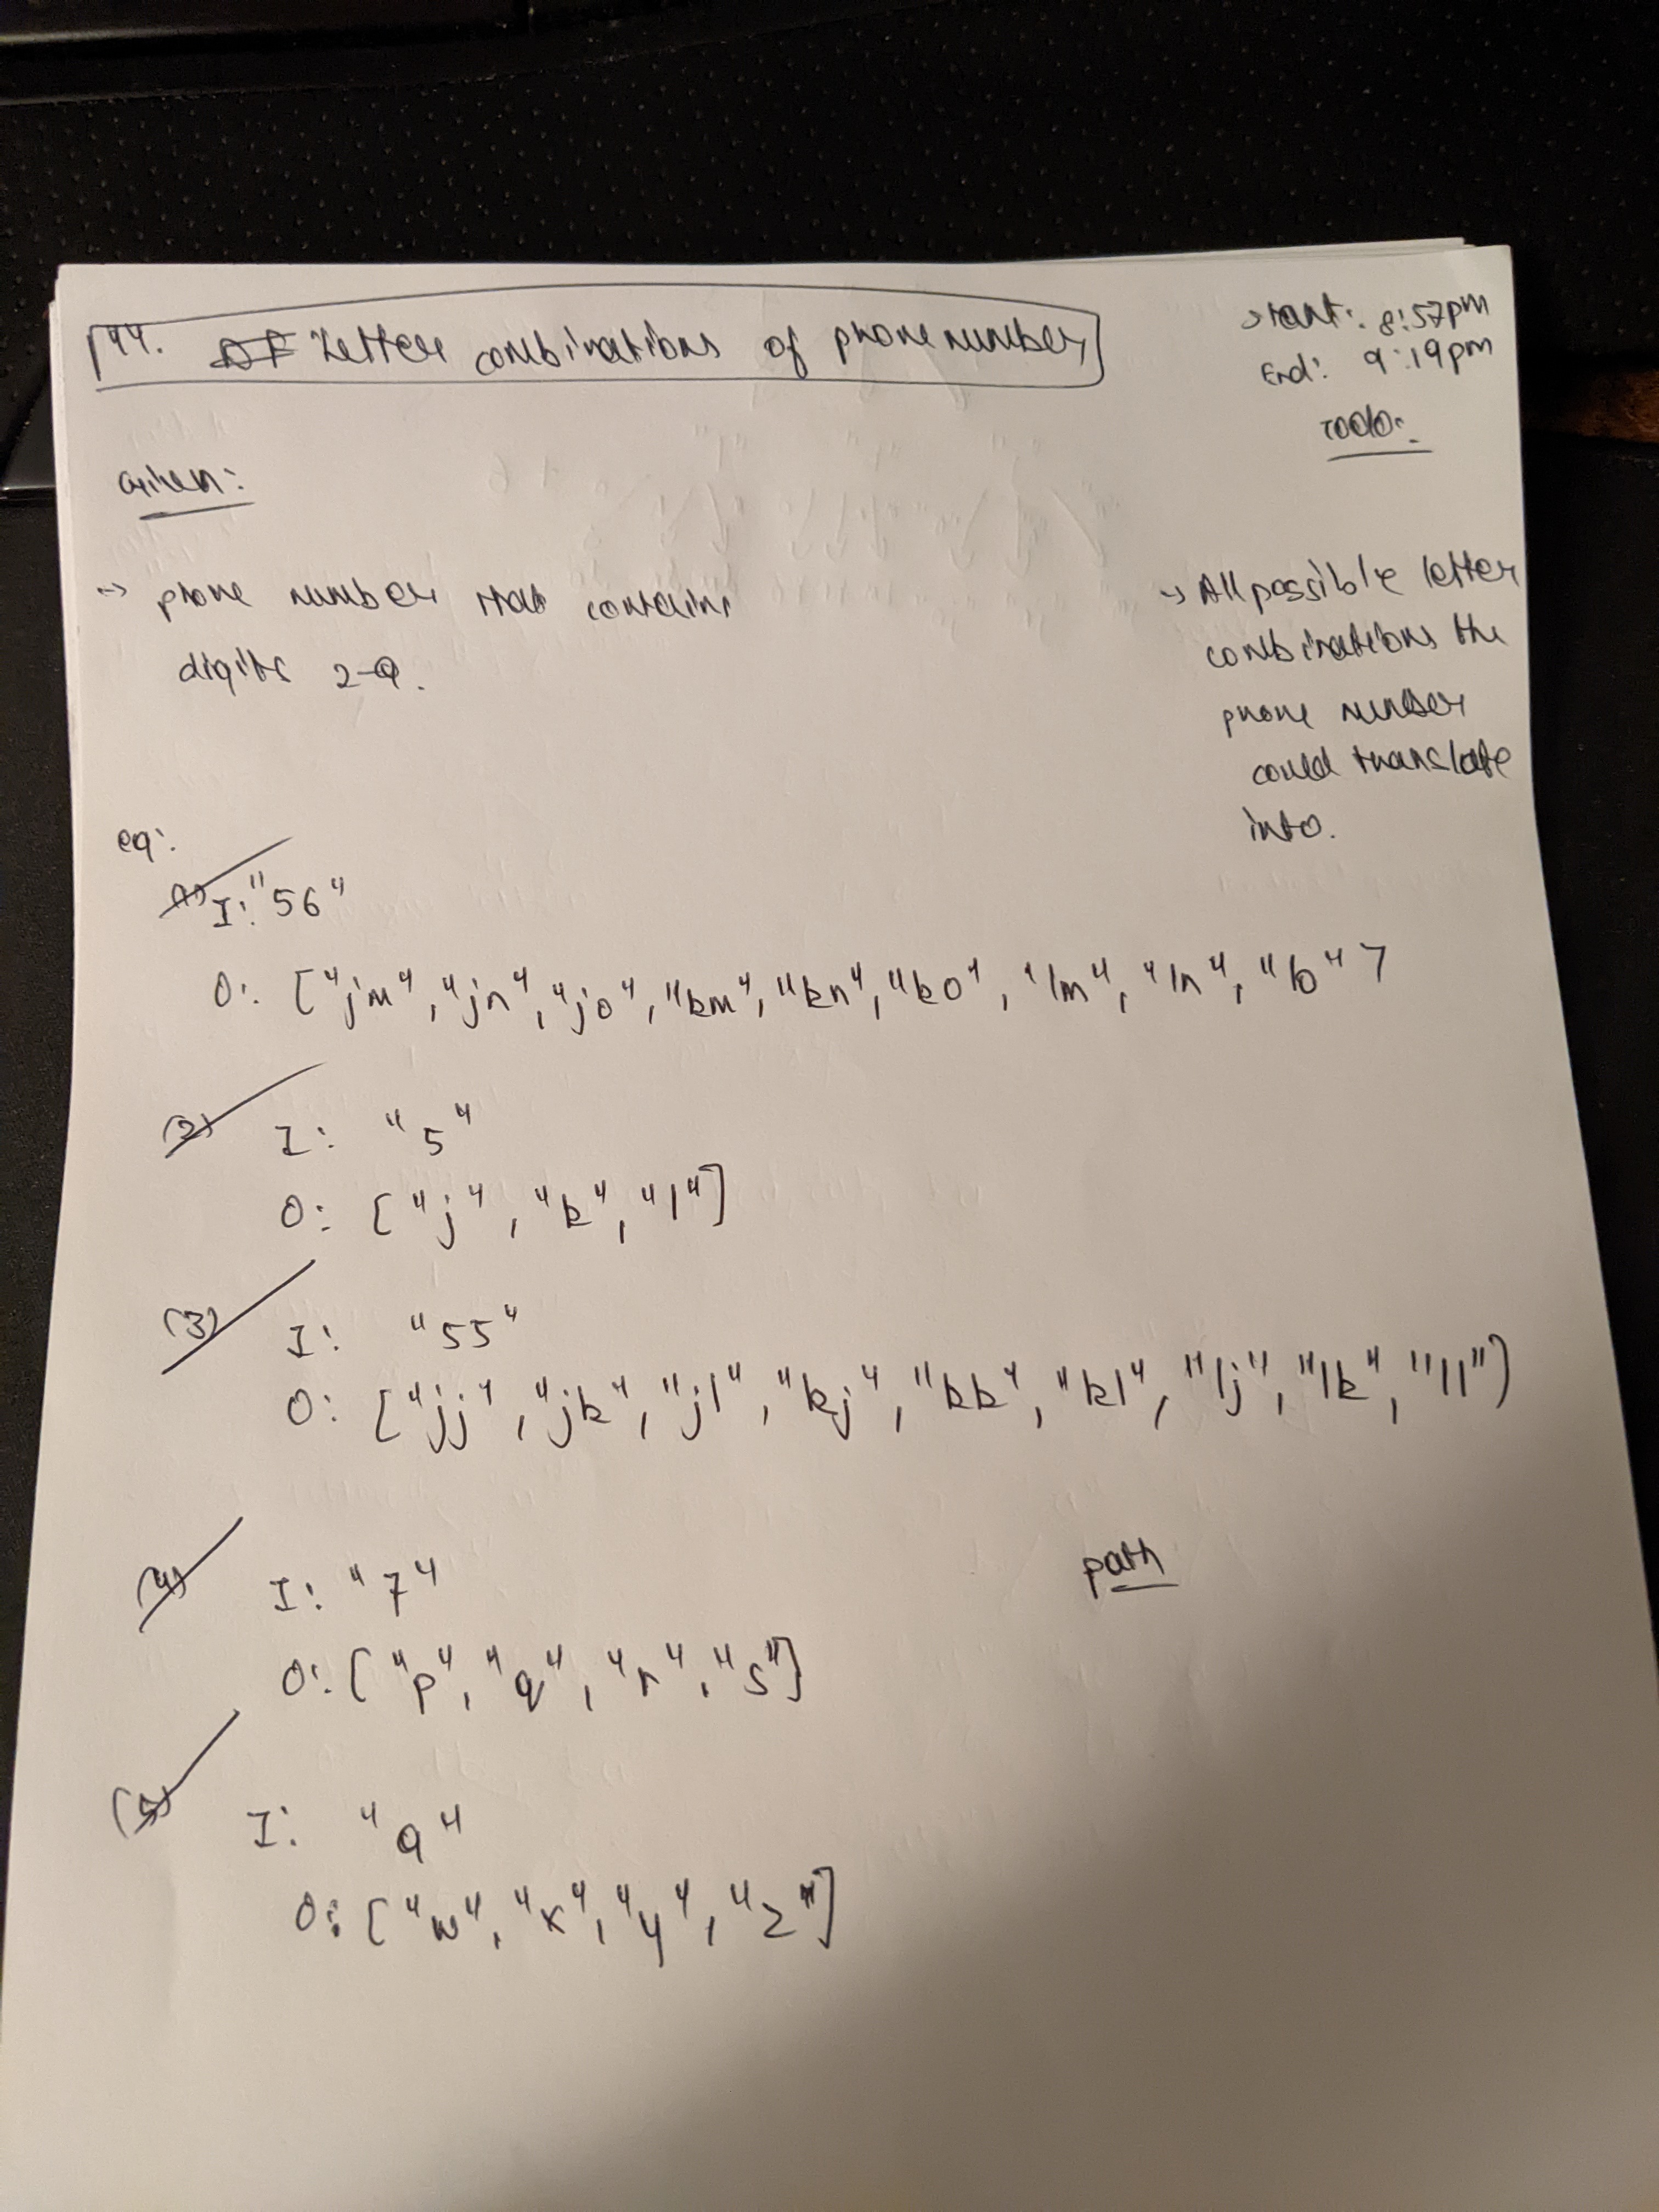 44. Letter combinations of phone number
Start: 8:57pm
End: 9:19pm
Todo:
Given:
-> phone number that contains
digits 2-9.
-> All possible letter
combinations the
phone number
could translate
into.
eg:
(1) I: "56"
O: ["jm", "jn", "jo", "km", "kn", "ko", "lm", "ln", "lo"]
(2) I: "5"
O: ["j", "k", "l"]
(3) I: "55"
O: ["jj", "jk", "jl", "kj", "kk", "kl", "lj", "lk", "ll"]
(4) I: "7"
O: ["p", "q", "r", "s"]
path
(5) I: "9"
O: ["w", "x", "y", "z"]